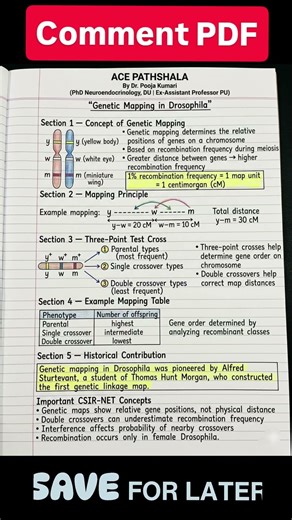 Comment PDF
ACE PATHSHALA
By Dr. Pooja Kumari
(PhD Neuroendocrinology, DU | Ex-Assistant Professor PU)
"Genetic Mapping in Drosophila"
Section 1 – Concept of Genetic Mapping
y y (yellow body)
w w (white eye)
m m (miniature wing)
• Genetic mapping determines the relative positions of genes on a chromosome
• Based on recombination frequency during meiosis
• Greater distance between genes → higher recombination frequency
1% recombination frequency = 1 map unit
= 1 centimorgan (cM)
Section 2 – Mapping Principle
Example mapping: y -------- w -------- m
y–w = 20 cM w–m = 10 cM
Total distance
y–m = 30 cM
Section 3 – Three-Point Test Cross
y⁺ w⁺ m⁺
y w m
① Parental types
(most frequent)
② Single crossover types
③ Double crossover types
(least frequent)
• Three-point crosses help determine gene order on chromosome
• Double crossovers help correct map distances
Section 4 – Example Mapping Table
Phenotype Number of offspring
Parental highest
Single crossover intermediate
Double crossover lowest
Gene order determined by
analyzing recombinant classes
Section 5 – Historical Contribution
Genetic mapping in Drosophila was pioneered by Alfred
Sturtevant, a student of Thomas Hunt Morgan, who constructed
the first genetic linkage map.
Important CSIR-NET Concepts
• Genetic maps show relative gene positions, not physical distance
• Double crossovers can underestimate recombination frequency
• Interference affects probability of nearby crossovers
• Recombination occurs only in female Drosophila.
SAVE FOR LATER